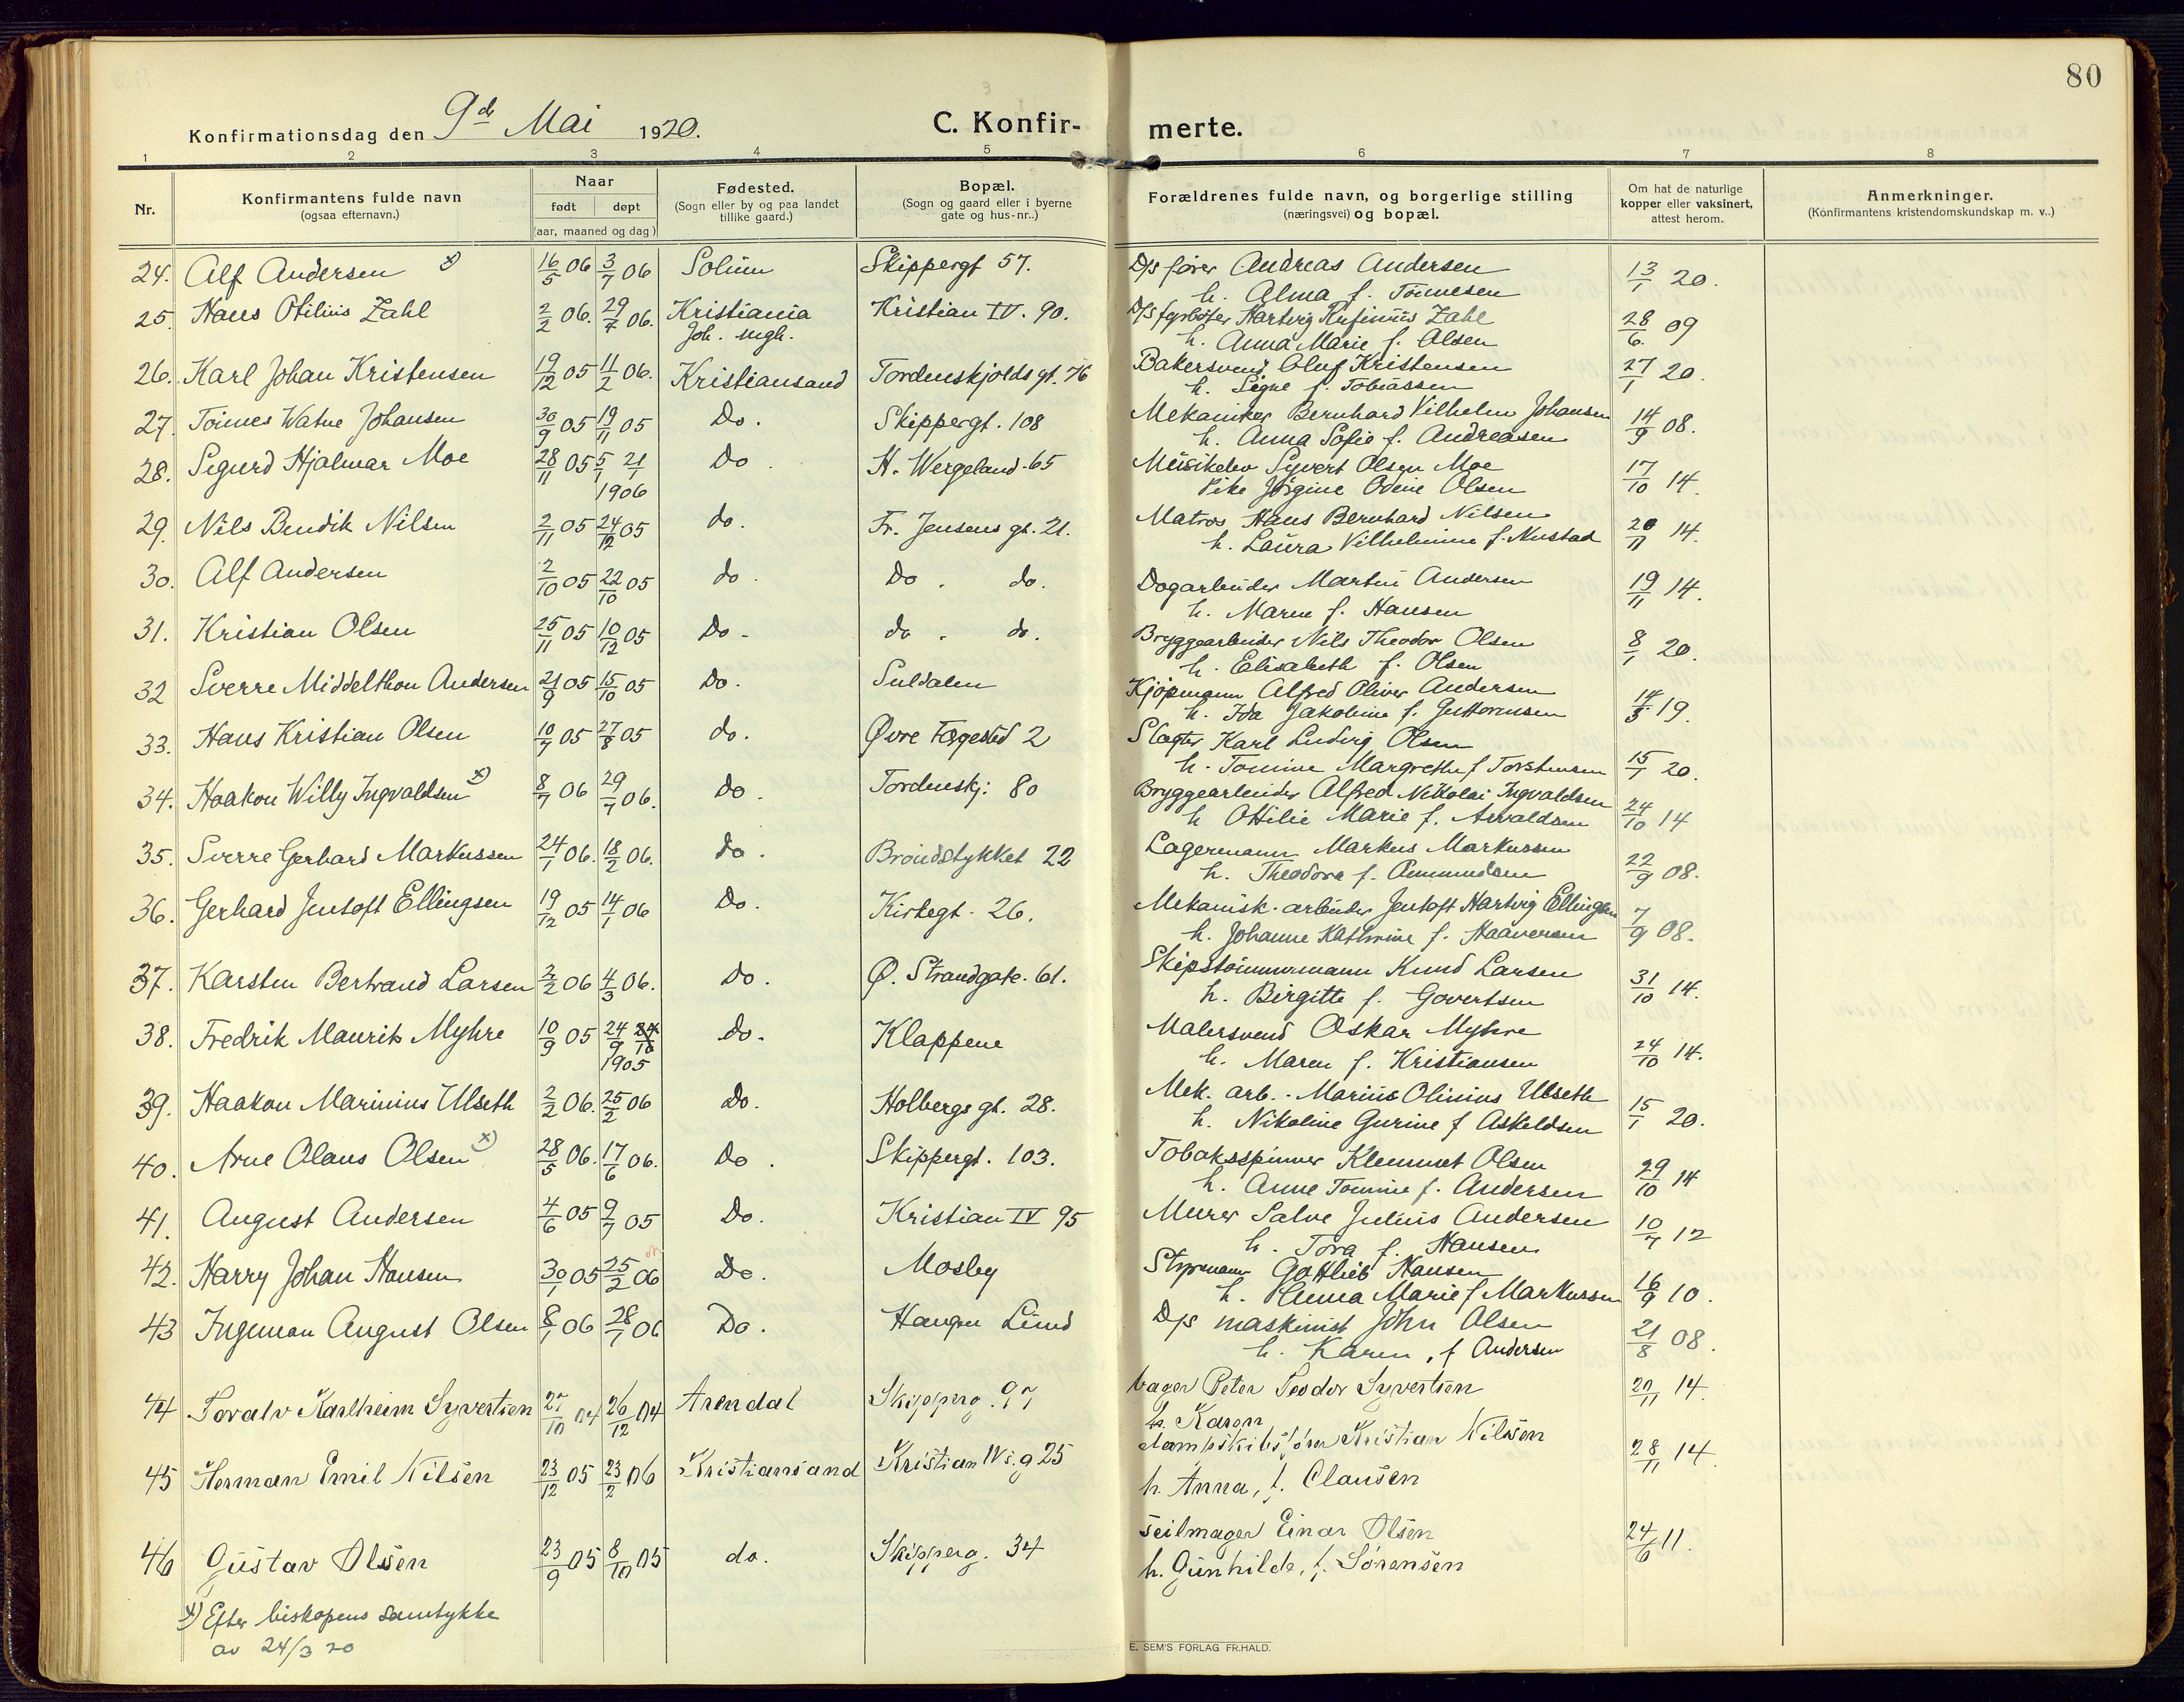 80
Konfirmationsdag den 9de Mai 1920. C. Konfir- merte.
1 2 3 4 5 6 7 8
Nr. Konfirmantens fulde navn (ogsaa efternavn.) Naar født døpt (aar, maaned og dag) Fødested. (Sogn eller by og paa landet tillike gaard.) Bopæl. (Sogn og gaard eller i byerne gate og hus-nr..) Forældrenes fulde navn, og borgerlige stilling (næringsvei) og bopæl. Om hat de naturlige kopper eller vaksinert, attest herom. Anmerkninger. (Konfirmantens kristendomskundskap m. v..)
24. Alf Andersen x) 16/5 06 3/7 06 Solum Skippergt 57. D/s fører Andreas Andersen 13/1 20.
h. Alma f. Tønnesen
25. Hans Otilius Zahl 2/2 06. 29/7 06. Kristiania Kristian IV. 90. D/s fyrbøter Hartvig Rufinius Zahl 28/6. 09
Joh. mgh. h. Anna Marie f. Olsen
26. Karl Johan Kristensen 19/12 05 11/2 06. Kristiansand Tordenskjolds gt. 76 Bakersvend Oluf Kristensen 27/1 20.
h. Signe f. Tobiassen
27. Tønnes Watne Johansen 30/9 05 19/11 05 Do. Skippergt. 108 Mekaniker Bernhard Vilhelm Johansen 14/9 08.
h. Anna Sofie f. Andreasen
28. Sigurd Hjalmar Moe 28/11 05 5/1 21/1 1906 Do. H. Wergeland. 65 Musikelev Syvert Olsen Moe 17/10 14.
Pike Jørgine Odine Olsen
29. Nils Bendik Nilsen 2/11 05 24/12 05 do. Fr. Jensens gt. 21. Matros Hans Bernhard Nilsen 20/11 14.
h. Laura Vilhelmine f. Mustad
30. Alf Andersen 2/10 05 22/10 05 do. Do. do. Dogarbeider Martin Andersen 19/11 14.
h. Maren f. Hansen
31. Kristian Olsen 25/11 05 10/12 05 Do. do. do. Bryggearbeider Nils Theodor Olsen 8/1 20.
h. Elisabeth f. Olsen
32 Sverre Middelthon Andersen 21/9 05 15/10 05 Do. Suldalen Kjøpmann Alfred Oliver Andersen 14/3 19.
h. Ida Jakobine f. Guttormsen
33. Hans Kristian Olsen 10/7 05 27/8 05 do. Øvre Tægested 2 Slagter Karl Ludvig Olsen 15/1 20.
h. Tomine Margrethe f Torstensen
34. Haakon Willy Ingvaldsen x) 8/7 06 29/7 06. Do. Tordenskj: 80 Bryggearbeider Alfred Nikolai Ingvaldsen 24/10 14
h Ottilie Marie f. Arvaldsen
35. Sverre Gerhard Markussen 24/1 06. 18/2 06. do. Brøndstykket 22 Lagermann Markus Markussen 22/9 08.
h. Theodora f. Ommundsen
36. Gerhard Jentoft Ellingsen 19/12 05 14/1 06 Do. Kirkegt. 26. Mekanisk. arbeider Jentoft Hartvig Ellingsen 7/9 08.
h. Johanne Kathrine f. Haaversen
37. Karsten Bertrand Larsen 2/2 06 4/3 06. Do. Ø. Strandgate. 61. Skipstømmermann Knud Larsen 31/10 14.
h. Birgitte f. Govertsen
38. Fredrik Maurits Myhre 10/9 05 24/9 24/10 1905 Do. Klappene Malersvend Oskar Myhre 24/10 14.
h. Maren f. Kristiansen
39. Haakon Marinius Ulseth 2/2 06. 25/2 06 Do. Holbergs gt. 28. Mek. arb.. Marius Olinius Ulseth 15/1 20.
h. Nikoline Gurine f Askeldsen
40. Arne Olaus Olsen x) 28/5 06. 17/6 06. Do. Skippergt. 103. Tobaksspinner Klemmet Olsen 29/10 14
h. Anne Tomine f. Andersen
41. August Andersen 4/6 05 9/7 05 Do. Kristian IV 95 Murer Salve Julius Andersen 10/7 12
h. Tora f. Hansen
42. Harry Johan Hansen 30/1 05 25/2 06 Do. Mosby Styrmann Gottlieb Hansen 16/9 10.
h. Anna Marie f Markussen
43 Ingeman August Olsen 8/1 06 28/1 06 Do. Haugen Lund D/s maskinist John Olsen 21/8 08.
h. Karen, f Andersen
44 Toralv Karlheim Syvertsen 27/10 04 26/12 04 Arendal Skipperg. 97 bager Peter Teodor Syvertsen 20/11 14.
h. Karen
45 Herman Emil Nilsen 23/12 05 23/2 06 Kristiansand Kristian IVs. g 25 dampskibsfører Kristian Nilsen 28/11 14.
h. Anna, f. Clausen
46 Gustav Olsen 23/9 05 8/10 05 do. Skipperg. 34 seilmager Einar Olsen 24/6 11.
h. Gunhilde, f. Sørensen
x) Efter biskopens samtykke
av 24/3 20
E. SEM'S FORLAG FR.HALD.